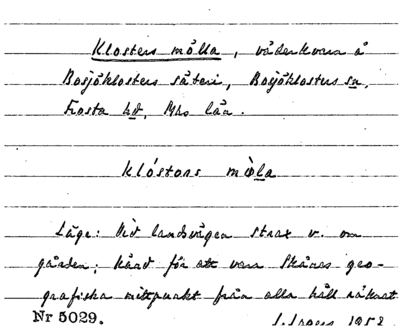 Klosters mölla, väderkvarn å
Bosjöklosters säteri, Bosjöklosters sn,
Frosta hd, Mhs län.
klóstors mø̀la
Läge: Vid landsvägen strax v. om
gården; känd för att vara Skånes geo-
grafiska mittpunkt från alla håll räknat
Nr 5029.
1952